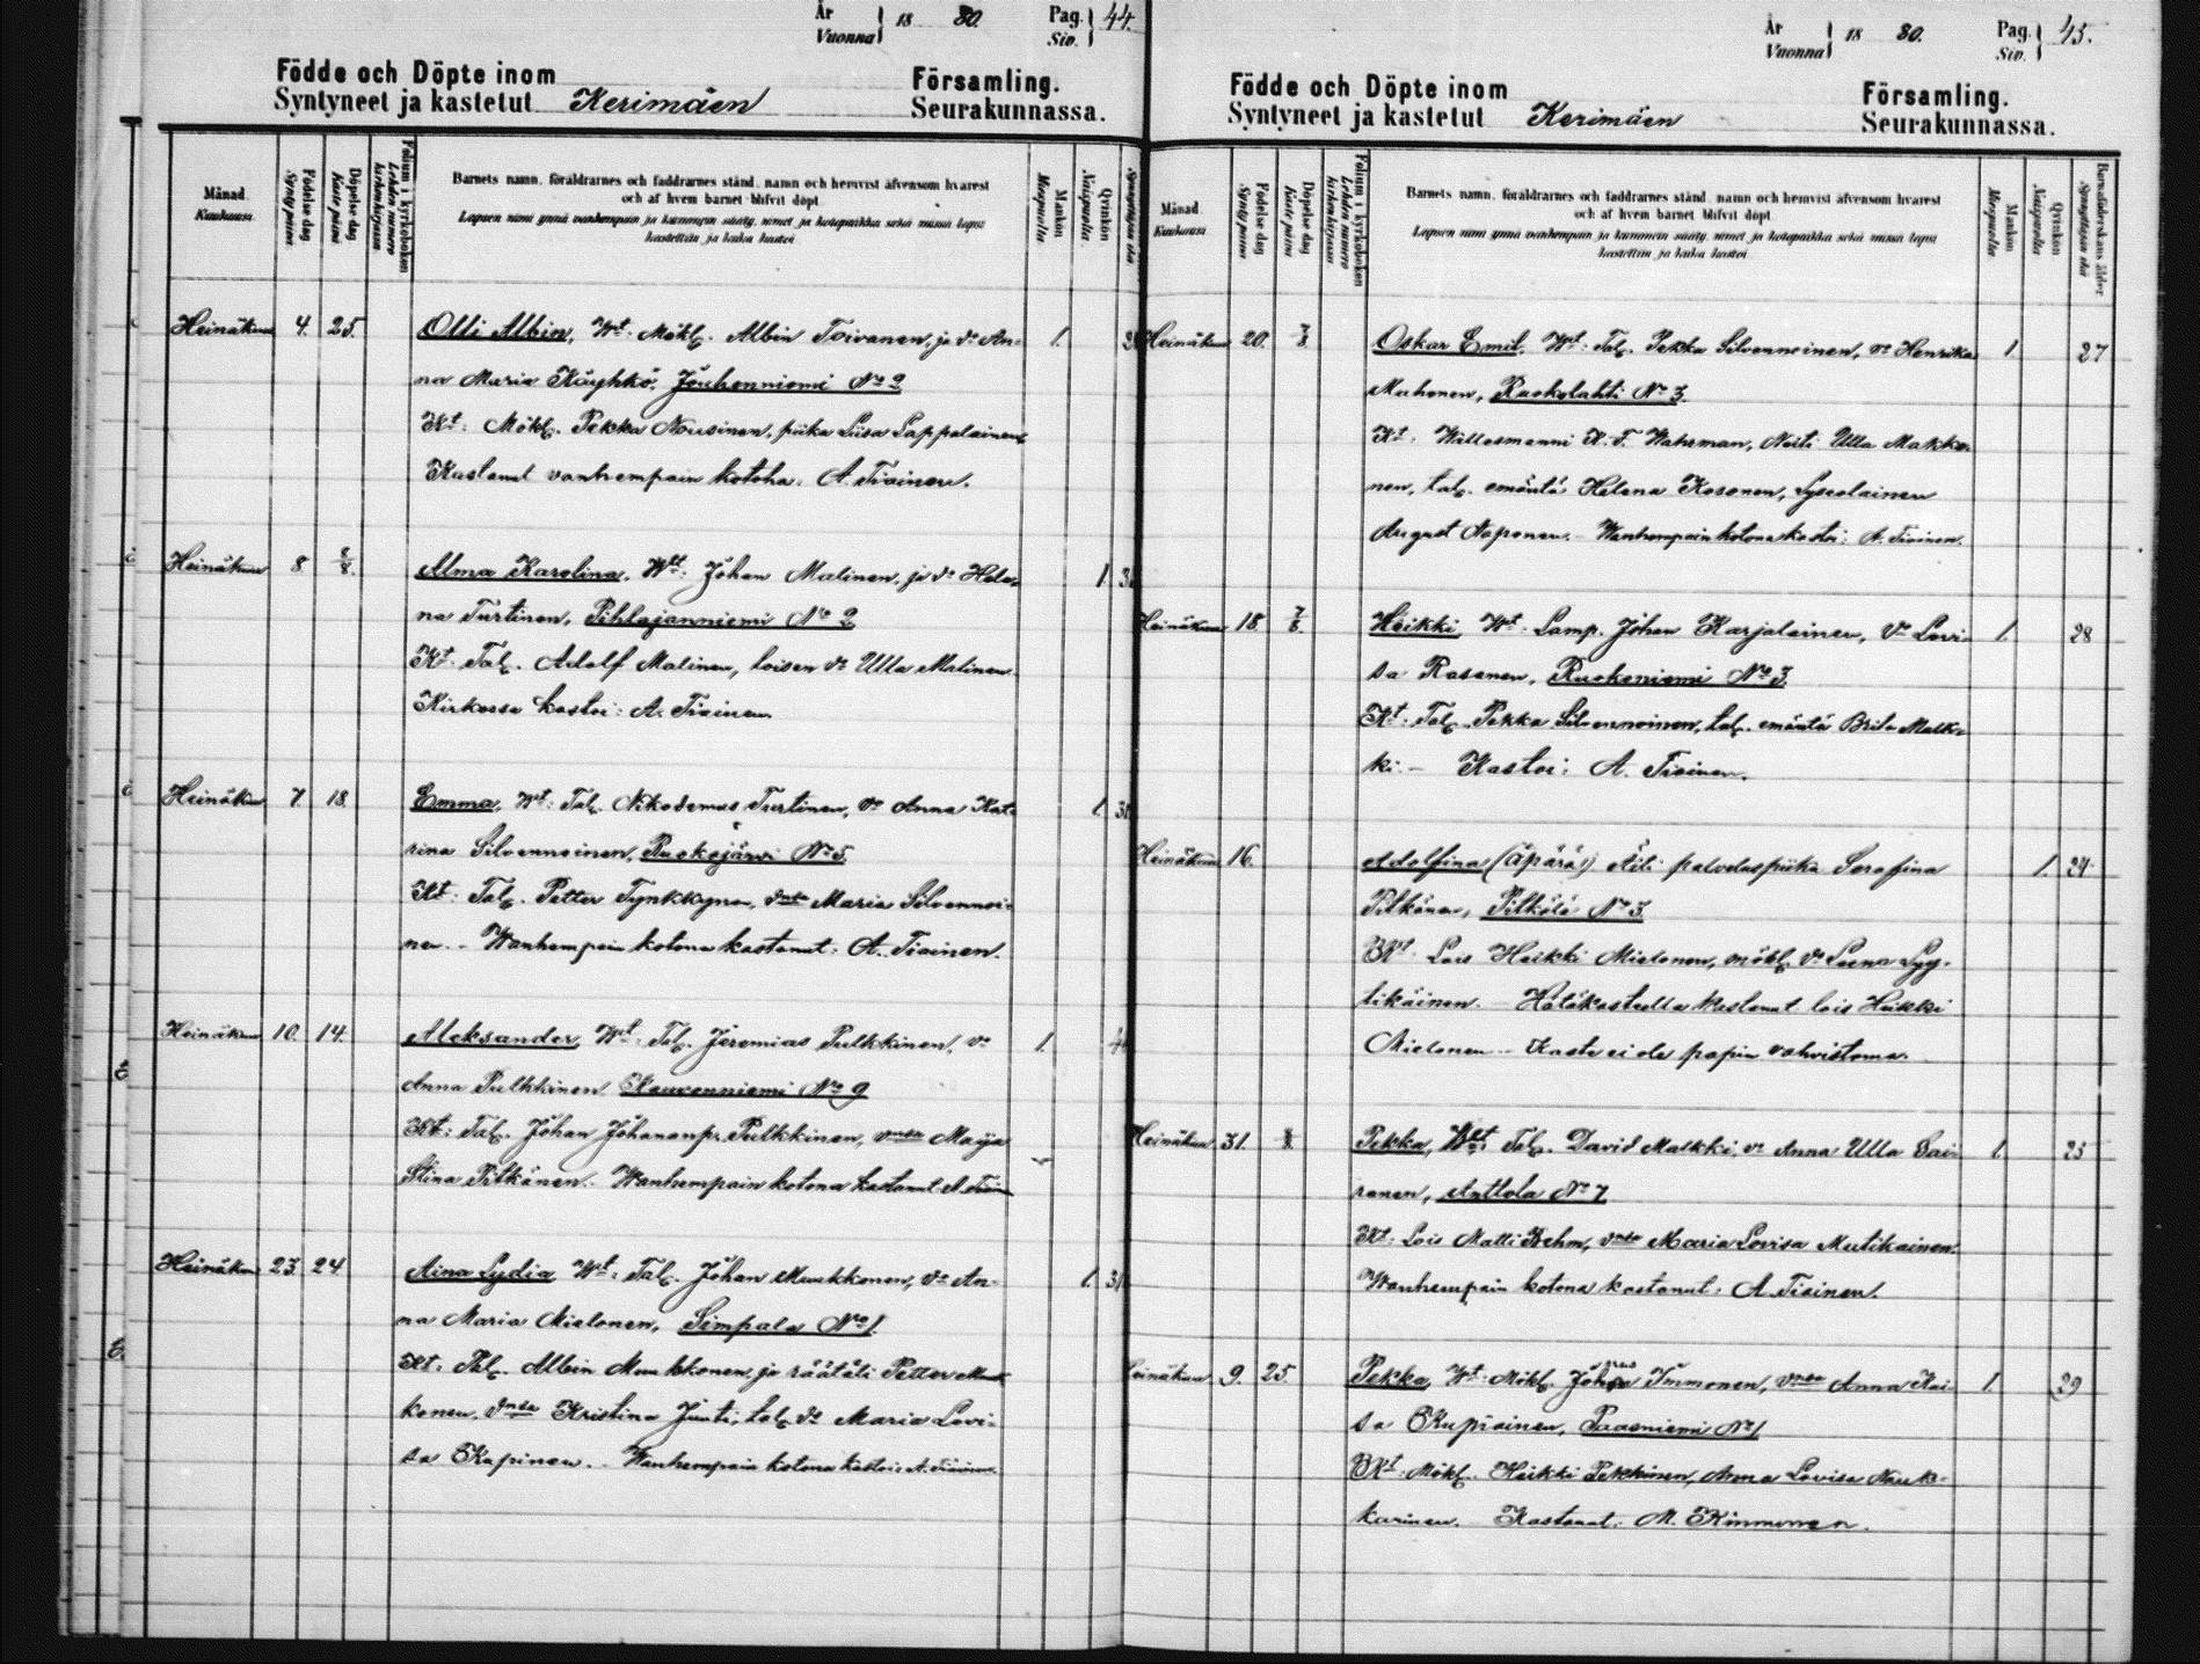 År
Vuonna } 18 80. Pag.
Siv. } 44.
Födde och Döpte inom
Syntyneet ja kastetut Kerimäen Församling.
Seurakunnassa.
Månad
Kuukausi
Födelse dag
Synty päivä
Döpelse dag
Kaste päivä
Folium i kyrkoboken
Lehden numero kirkonkirjassa
Barnets namn, föräldrarnes och faddrarnes stånd, namn och hemvist äfvensom hvarest
och af hvem barnet blifvit döpt
Lapsen nimi ynnä vanhempain ja kummein sääty, nimet ja kotopaikka sekä missä lapsi
kastettiin ja kuka kastoi
Mankön
Miespuolia
Qvinkön
Naispuolia
Heinäkuu 4. 25. Olli Albin, Wt. Mökl. Albin Toivanen, ja vo An- 1.
na Maria Käyhkö, Jouhenniemi No 2
Kt: Mökl. Pekka Nousinen, piika Liisa Lappalainen
Kastanut vanhempain kotona: A. Tiainen.
Heinäkuu 8. 8/8. Alma Karolina, Wt: Johan Malinen, ja vo Hele- 1.
na Turtinen, Pihlajanniemi No 2
Kt. Tal. Adolf Malinen, loisen vo Ulla Malinen
Kirkossa kastoi: A. Tiainen
Heinäkuu 7. 18. Emma, Wt: Tal. Nikodemus Turtinen, vo Anna Kat- 1.
rina Silvennoinen, Ruokojärvi No 5.
Kt: Tal. Petter Tynkkynen, vmsa Maria Silvennoi-
nen. - Wanhempain kotona kastanut: A. Tiainen.
Heinäkuu 10. 14. Aleksander, Wt: Tal. Jeremias Pulkkinen, vo 1.
Anna Pulkkinen No 9
Kt: Tal. Johan Johananp. Pulkkinen, vmsa Maija
Stina Pitkänen. Wanhempain kotona kastanut A. Tiain
Heinäkuu 23. 24. Aina Lydia Wt: Tal. Johan Muukkonen, vo An- 1.
na Maria Mielonen, Simpala No 1.
Kt. Tal. Albin Muukkonen, ja räätäli Petter Muuk
konen, vmsa Kristina Juuti, tal. vo Maria Lovi-
sa Kupinen. - Wanhempain kotona kastoi: A. Tiainen.
År
Vuonna } 18 80. Pag.
Siv. } 45.
Födde och Döpte inom
Syntyneet ja kastetut Kerimäen Församling.
Seurakunnassa.
Månad
Kuukausi
Födelse dag
Synty päivä
Döpelse dag
Kaste päivä
Folium i kyrkoboken
Lehden numero kirkonkirjassa
Barnets namn, föräldrarnes och faddrarnes stånd, namn och hemvist äfvensom hvarest
och af hvem barnet blifvit döpt
Lapsen nimi ynnä vanhempain ja kummein sääty, nimet ja kotopaikka sekä missä lapsi
kastettiin ja kuka kastoi
Mankön
Miespuolia
Qvinkön
Naispuolia
Barnaföderskans ålder
Synnyttäjän ikä
Heinäkuu 20. 7/8 Oskar Emil, Wt: Tal. Pekka Silvennoinen, vo Henrika 1. 27
Muhonen, Ruokolahti No 3.
Kt. K. F. Wahrman, Neiti Ulla Makko-
nen, tal. emäntä Helena Kosonen, Lyseolainen
August Naponen. Wanhempain kotona kastoi: A. Tiainen.
Heinäkuu 18. 7/8. Heikki, Wt: Lamp. Johan Karjalainen, vo Lovi- 1. 28
sa Rasanen, Ruokoniemi No 3.
Kt: Tal. Pekka Silvennoinen, tal. emäntä Brita Malk-
ki. - Kastoi: A. Tiainen.
Heinäkuu 16. Adolfina (äpärä) Äiti palveluspiika Serafina 1. 24
Pitkänen, Pitkälä No 3.
Kt. Lois Heikki Mielonen, mökl. vo Leena Lyy-
tikäinen. - Hätäkasteella kastanut lois Heikki
Mielonen - Kaste ei ole papin vahvistama.
Heinäkuu 31. 8/8. Pekka, Wt: Tal. David Malkki, vo Anna Ulla Sai- 1. 25
ranen, Anttola No 7.
Kt: Lois Matti Behm, vmsa Maria Lovisa Mutikainen.
Wanhempain kotona kastanut: A. Tiainen.
Heinäkuu 9. 25. Pekka, Wt: Mökl. Immonen, vmsa Anna Kai- 1. 29
sa Kupiainen, Paasniemi No 1
Kt. Mökl. Heikki Pekkinen, Anna Lovisa Nauk-
karinen. Kastanut: M. Kinnunen.